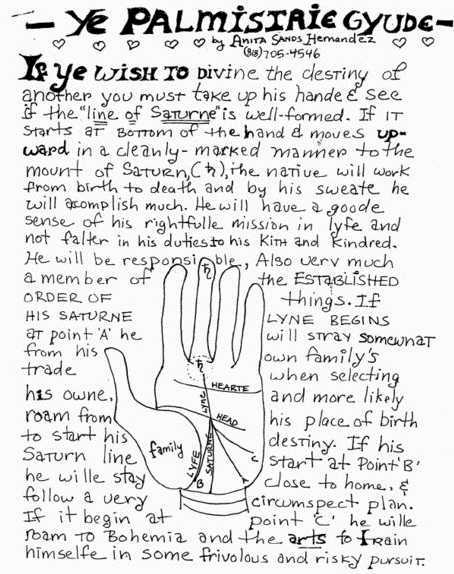 — Ye PALMISTRIE GYUDE —
by ANITA SANDS HERNANDEZ
(818) 705-4546
If Ye WISH TO Divine the destiny of
another you must take up his hande & see
if the "line of SATURNE" is well-formed. If IT
starts AT BOTTOM of the hand & moves up-
ward in a cleanly-marked manner to the
mount of SATURN, (♄), the native will work
from birth to death and by his sweate he
will acomplish much. He will have a goode
sense of his rightfulle mission in lyfe and
not falter in his duties to his KITH and Kindred.
He will be responsible, Also very much
a member of the ESTABLISHED
ORDER OF things. If
HIS SATURNE LYNE BEGINS
AT point 'A' he will stray somewhat
from his own family's
trade when selecting
his owne. and more likely
roam from his place of birth
to start his destiny. If his
Saturn line start at Point 'B'
he wille stay close to home. &
follow a very circumspect plan.
If it begin at point 'C' he wille
roam TO Bohemia and the arts to train
himselfe in some frivolous and risky pursuit.
♄
♄
HEARTE
LYNE
HEAD
family
LYFE
SATURNE
C
A
B